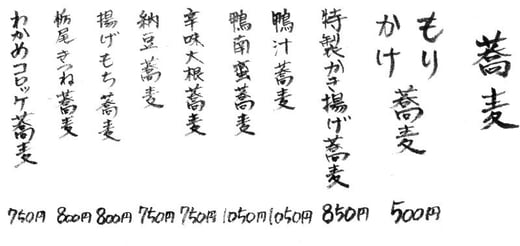 蕎麦
もり
かけ
蕎麦 500円
特製かき揚げ蕎麦 850円
鴨汁蕎麦 1050円
鴨南蛮蕎麦 1050円
辛味大根蕎麦 750円
納豆蕎麦 750円
揚げもち蕎麦 800円
栃尾きつね蕎麦 800円
わかめコロッケ蕎麦 750円